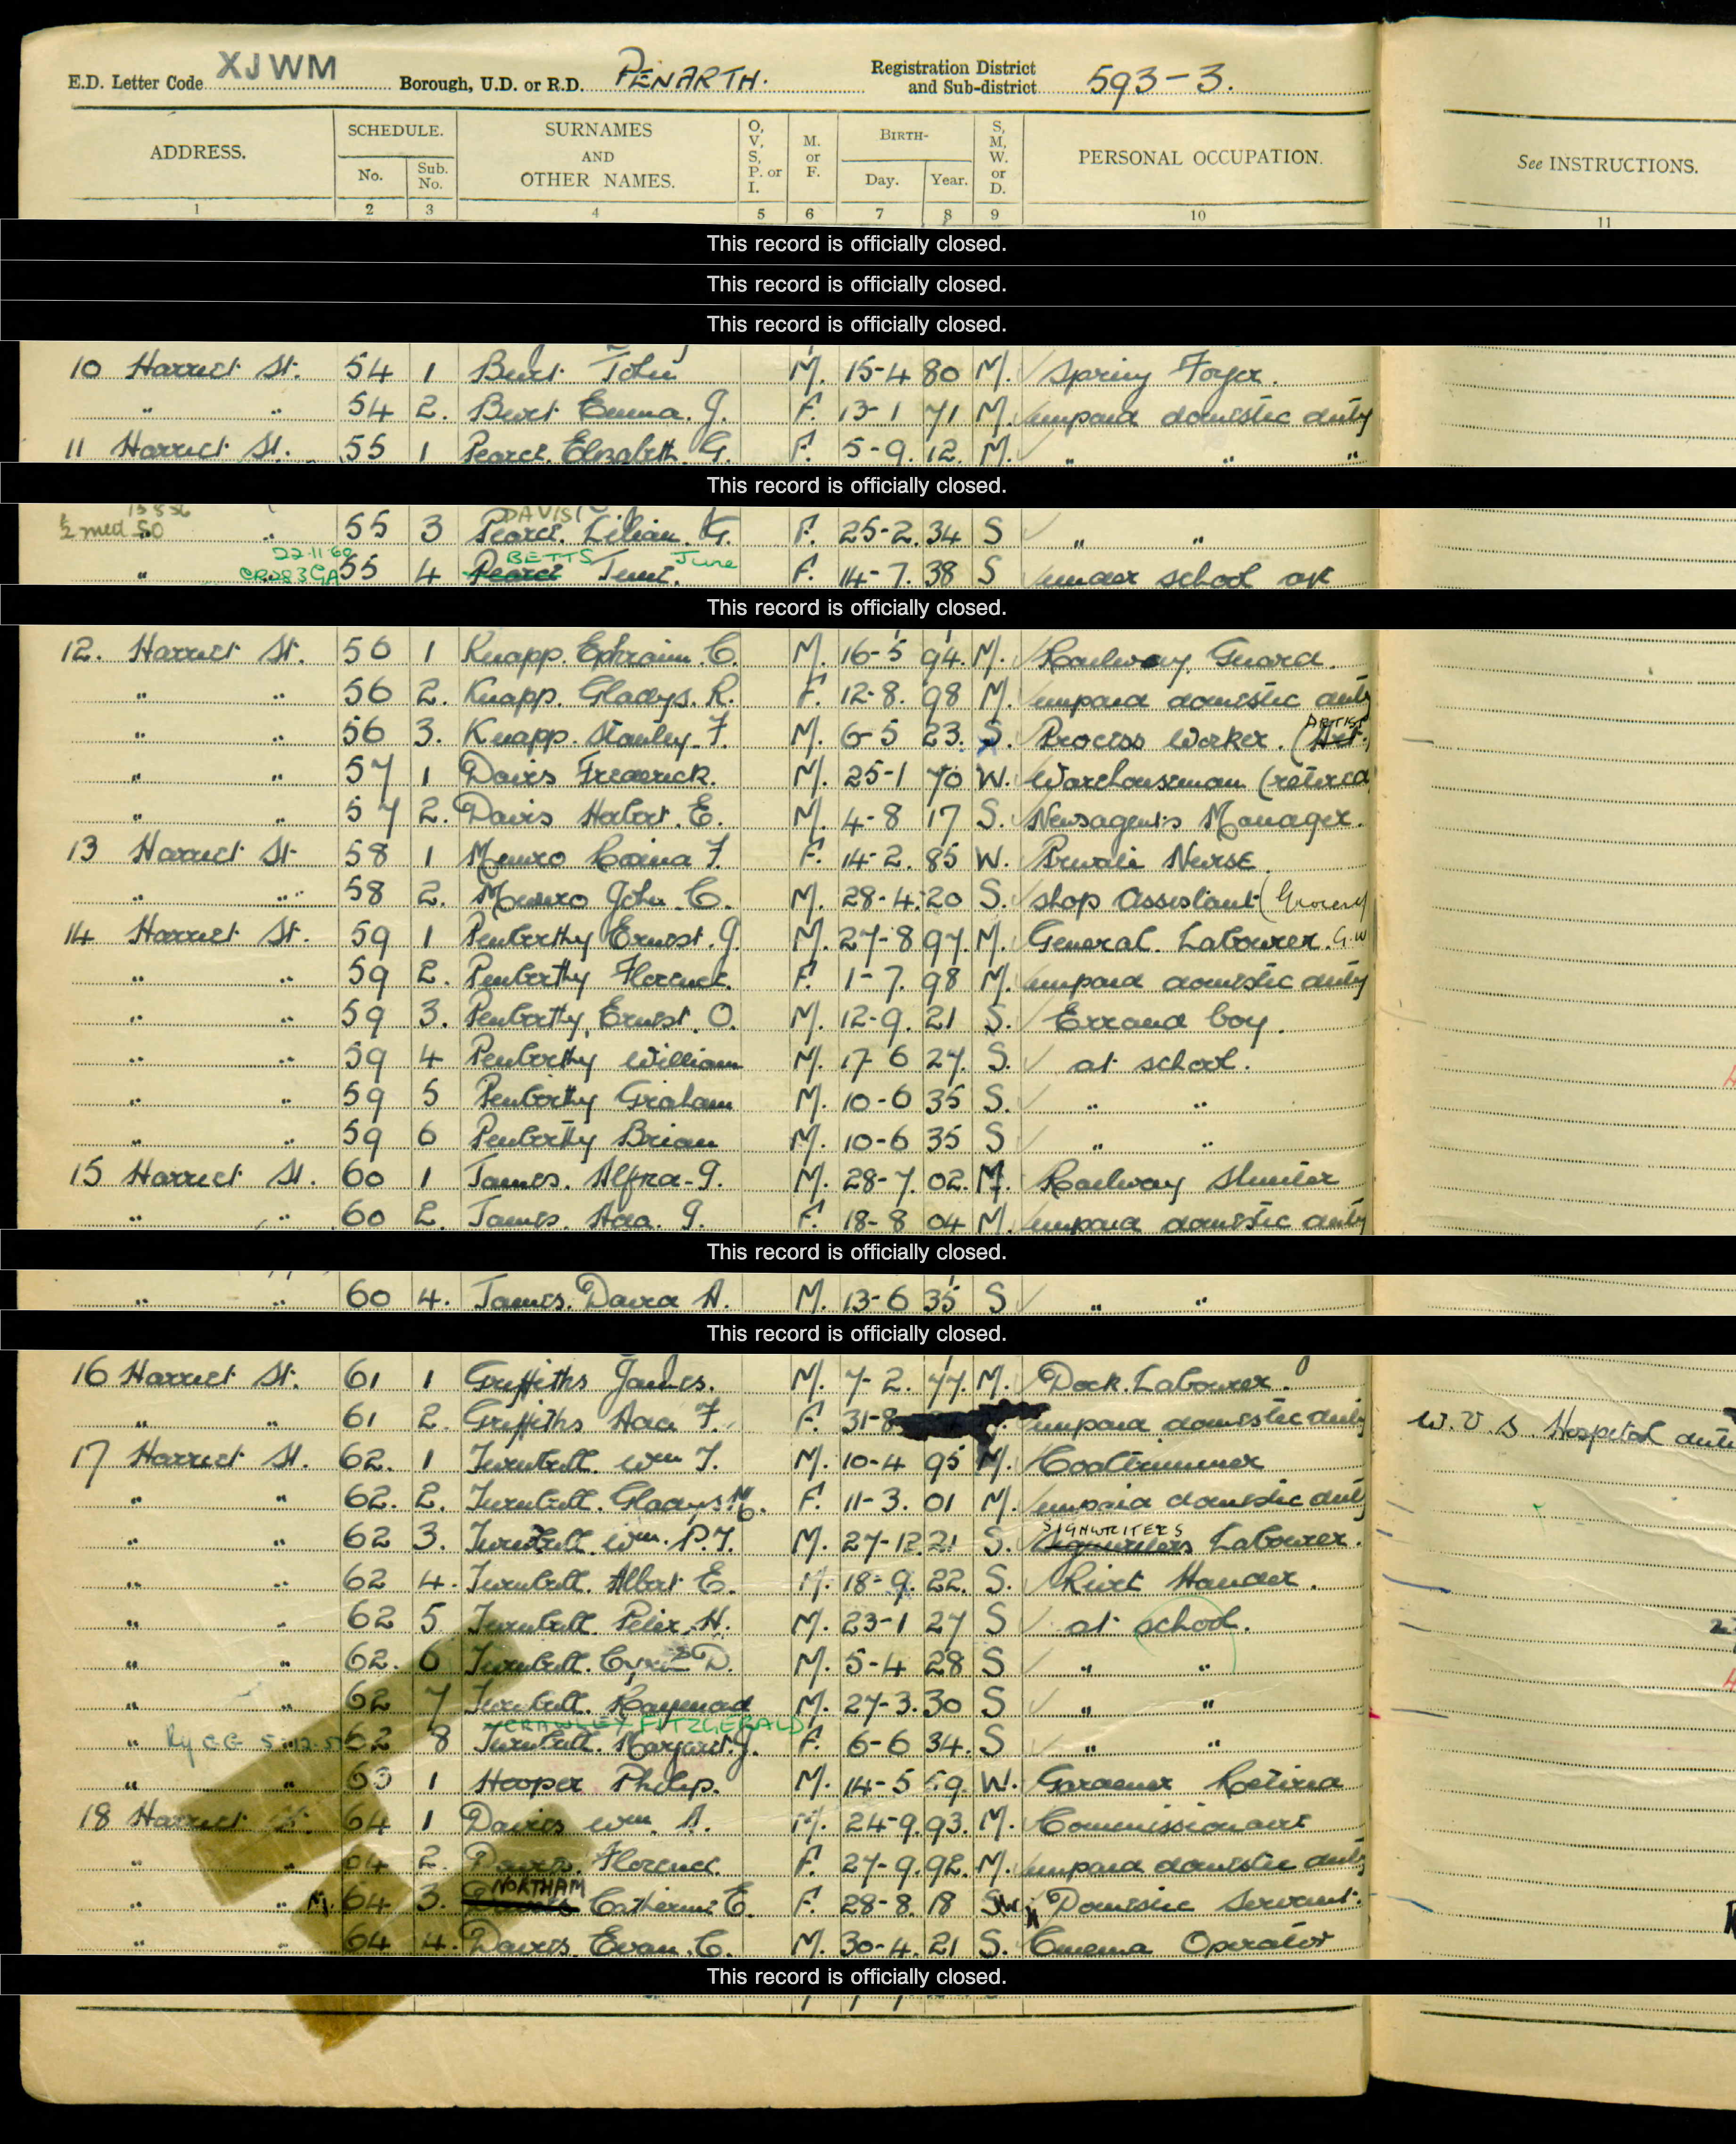 E.D. Letter Code XJWM Borough, U.D. or R.D. PENARTH. Registration District and Sub-district 593-3.
ADDRESS. SCHEDULE. No. Sub. No. SURNAMES AND OTHER NAMES. O, V, S, P. or I. M. or F. BIRTH- Day. Year. S, M, W. or D. PERSONAL OCCUPATION. See INSTRUCTIONS.
1 2 3 4 5 6 7 8 9 10 11
This record is officially closed.
This record is officially closed.
This record is officially closed.
10 Harriet St. 54 1 Burt John M. 15-4 80 M. Spring Forger.
" " 54 2. Burt Emma. J. F. 13-1 71 M. unpaid domestic duty
11 Harriet St. 55 1 Pearce. Elizabeth. G. F. 5-9. 12. M. " " "
This record is officially closed.
DAVIS
" 55 3 Pearce. Lilian. G. F. 25-2. 34 S " "
22-11-60 BETTS June
" CR283 GA 55 4 Pearce F. 14-7. 38 S under school age
This record is officially closed.
12. Harriet St. 56 1 Knapp. Ephraim. C. M. 16-5 94. M. Railway Guard.
" " 56 2. Knapp. Gladys. R. F. 12-8. 98 M. unpaid domestic duty
" " 56 3. Knapp. Stanley. F. M. 6-5 23. S. Process Worker. (Art. ARTIST
" " 57 1 Davis Frederick. M. 25-1 70 W. Warehouseman (retired
" " 57 2. Davis Herbert. E. M. 4-8 17 S. Newsagents Manager.
13 Harriet St 58 1 Munro F. F. 14-2. 85 W. Private Nurse.
" " 58 2. Munro John C. M. 28-4. 20 S. Shop Assistant (Grocery
14 Harriet St. 59 1 Penberthy Ernest. J. M. 27-8 97. M. General Labourer. G.W
" " 59 2. Penberthy Florence. F. 1-7. 98 M. unpaid domestic duty
" " 59 3. Penberthy, Ernest. O. M. 12-9. 21 S. Errand boy.
" " 59 4 Penberthy William M. 17-6 27. S. at school.
" " 59 5 Penberthy Graham M. 10-6 35 S. " "
" " 59 6 Penberthy Brian M. 10-6 35 S " "
15 Harriet St. 60 1 James. Alfred. G. M. 28-7. 02. M. Railway Shunter
" " 60 2. James. Ada. G. F. 18-8 04 M. unpaid domestic duty
This record is officially closed.
" " 60 4. James. David A. M. 13-6 35 S " "
This record is officially closed.
16 Harriet St. 61 1 Griffiths James. M. 7-2. 77. M. Dock Labourer.
" " 61 2. Griffiths Ada F. F. 31-8 unpaid domestic duty W.V.S. Hospital
17 Harriet St. 62. 1 Turnbull. Wm T. M. 10-4 95 M. Coaltrimmer
" " 62. 2. Turnbull. Gladys M. F. 11-3. 01 M. unpaid domestic duty
SIGNWRITERS
" " 62 3. Turnbull. Wm. P.T. M. 27-12. 21 S. Signwriters Labourer.
" " 62 4. Turnbull. Albert E. M. 18-9. 22. S. Rivet Hander.
" " 62 5 Turnbull. Peter. H. M. 23-1 27 S at school.
" " 62. 6 Turnbull. D. M. 5-4 28 S " "
" " 62 7 Turnbull. Raymond M. 27-3. 30 S " "
CRAWLEY FITZGERALD
" 62 8 Turnbull. Margaret. J. F. 6-6 34. S " "
" " 63 1 Hooper Philip. M. 14-5 59. W. Gardener Retired
18 Harriet St. 64 1 Davies Wm. A. M. 24-9. 93. M. Commissionaire
" " 64 2. Davies. Florence. F. 27-9. 92. M. unpaid domestic duty
NORTHAM
" " M. 64 3. Davies Catherine E. F. 28-8. 18 S. Domestic Servant.
" " 64 4. Davies. Evan. C. M. 30-4. 21 S. Cinema Operator
This record is officially closed.